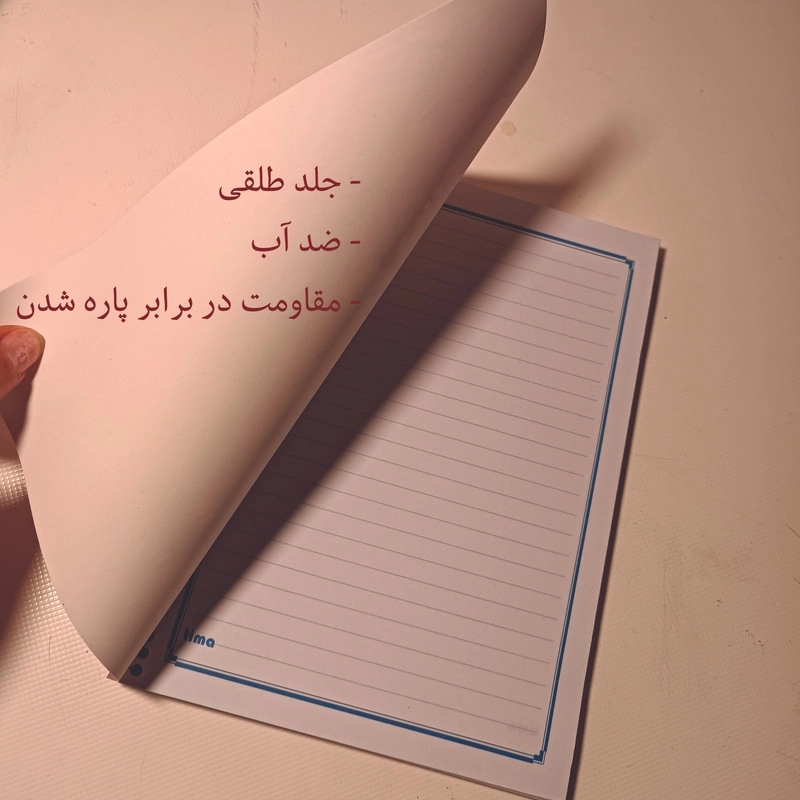 - جلد طلقی
- ضد آب
- مقاومت در برابر پاره شدن